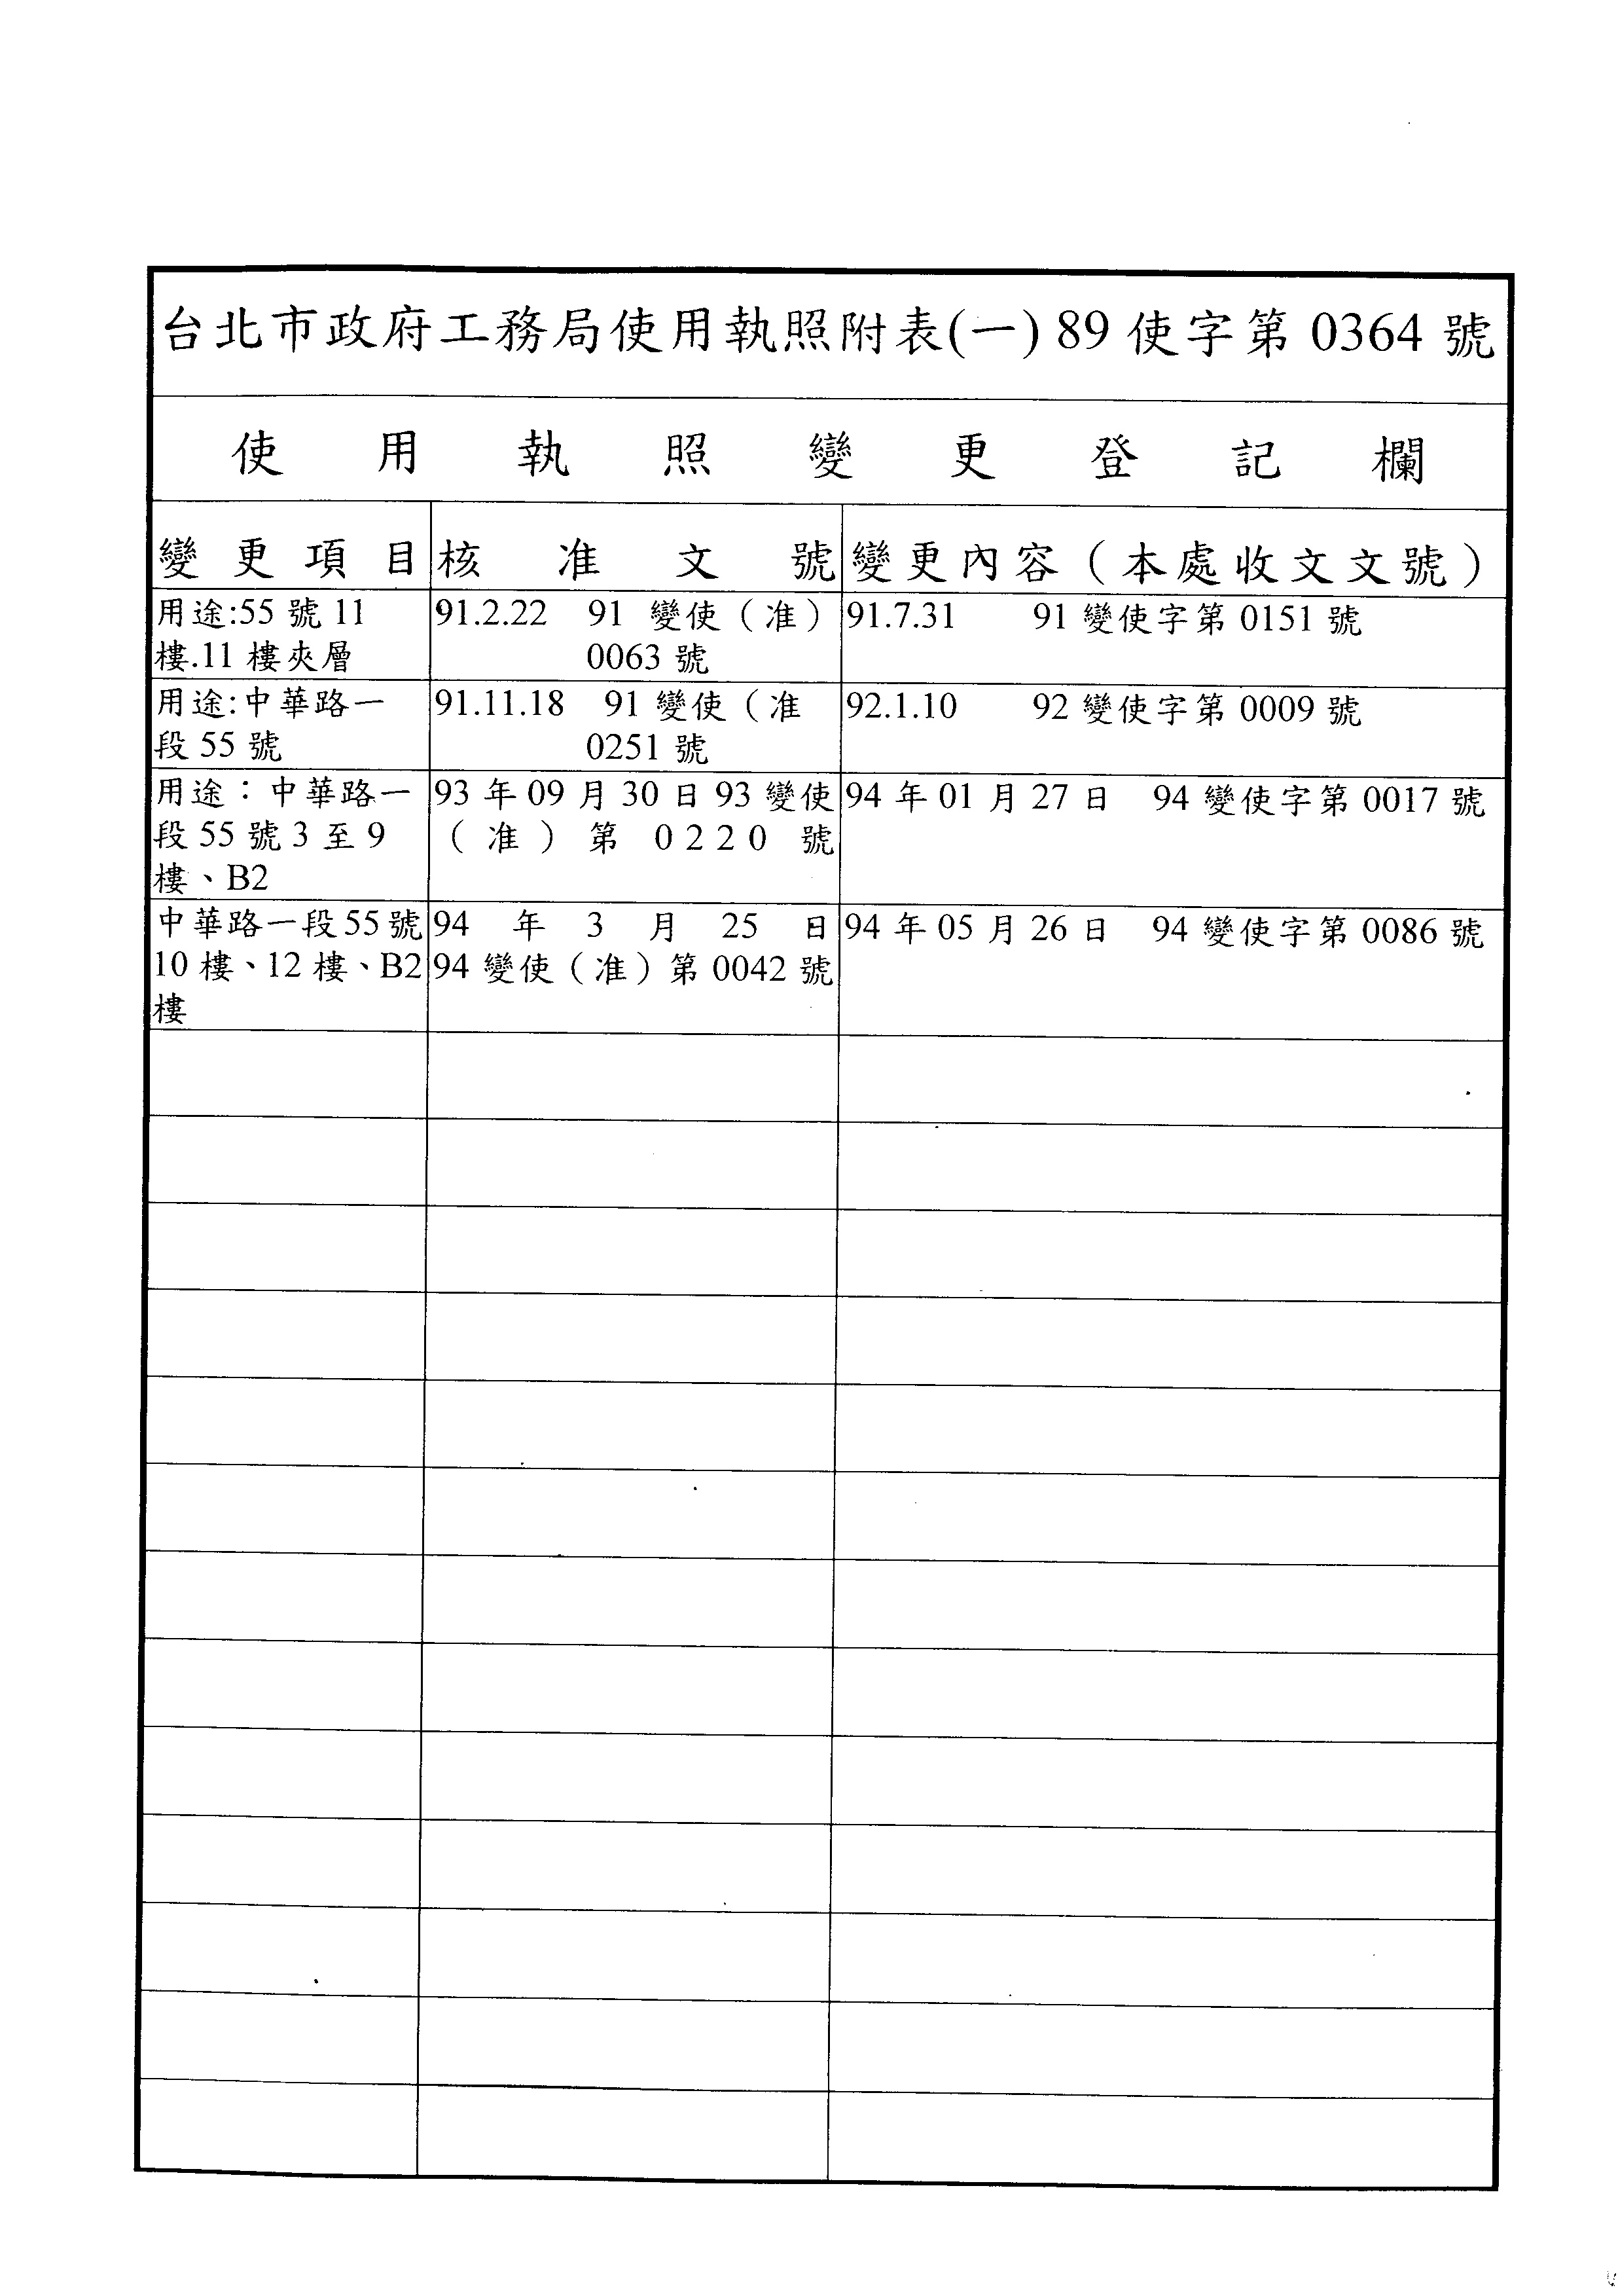 台北市政府工務局使用執照附表(一) 89 使字第 0364 號
使用執照變更登記欄
變更項目 核准文號 變更內容（本處收文文號）
用途:55 號 11
樓.11 樓夾層
91.2.22 91 變使（准）
0063 號
91.7.31 91 變使字第 0151 號
用途:中華路一
段 55 號
91.11.18 91 變使（准
0251 號
92.1.10 92 變使字第 0009 號
用途：中華路一
段 55 號 3 至 9
樓、B2
93 年 09 月 30 日 93 變使
（准）第 0220 號
94 年 01 月 27 日 94 變使字第 0017 號
中華路一段 55 號
10 樓、12 樓、B2
樓
94 年 3 月 25 日
94 變使（准）第 0042 號
94 年 05 月 26 日 94 變使字第 0086 號